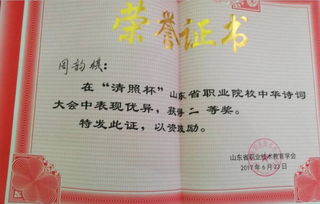 荣誉证书
周韵娸：
在“清照杯”山东省职业院校中华诗词
大会中表现优异，获得二等奖。
特发此证，以资鼓励。
山东省职业技术教育学会
2017年6月23日